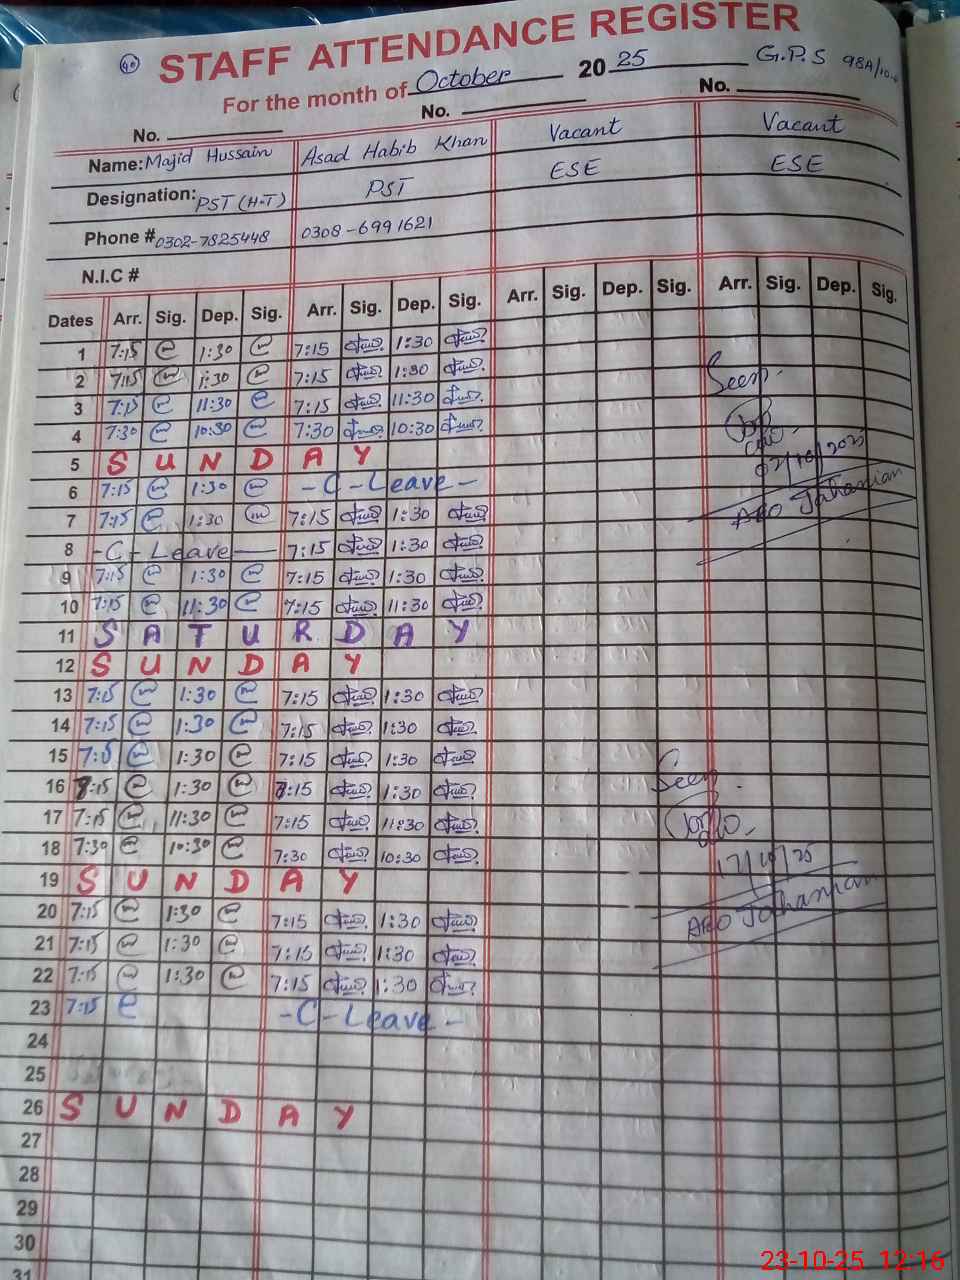 40
STAFF ATTENDANCE REGISTER
For the month of October 20 25 G.P.S 98A/10-R
No. No. No.
Name: Majid Hussain Asad Habib Khan Vacant Vacant
Designation: PST (H.T) PST ESE ESE
Phone # 0302-7825448 0308-6991621
N.I.C #
Dates Arr. Sig. Dep. Sig. Arr. Sig. Dep. Sig. Arr. Sig. Dep. Sig. Arr. Sig. Dep. Sig.
1 7:15 1:30 7:15 1:30
2 7:15 1:30 7:15 1:30 Seen.
3 7:15 11:30 7:15 11:30
4 7:30 10:30 7:30 10:30
5 SUNDAY 02/10/2025
6 7:15 1:30 -C-Leave- AEO Jahanian
7 7:15 1:30 7:15 1:30
8 -C-Leave- 7:15 1:30
9 7:15 1:30 7:15 1:30
10 7:15 11:30 7:15 11:30
11 SATURDAY
12 SUNDAY
13 7:15 1:30 7:15 1:30
14 7:15 1:30 7:15 1:30
15 7:15 1:30 7:15 1:30 Seen
16 7:15 1:30 7:15 1:30
17 7:15 11:30 7:15 11:30
18 7:30 10:30 7:30 10:30 17/10/25
19 SUNDAY
20 7:15 1:30 7:15 1:30 AEO Jahanian
21 7:15 1:30 7:15 1:30
22 7:15 1:30 7:15 1:30
23 7:15 -C-Leave-
24
25
26 SUNDAY
27
28
29
30
31
23-10-25 12:16